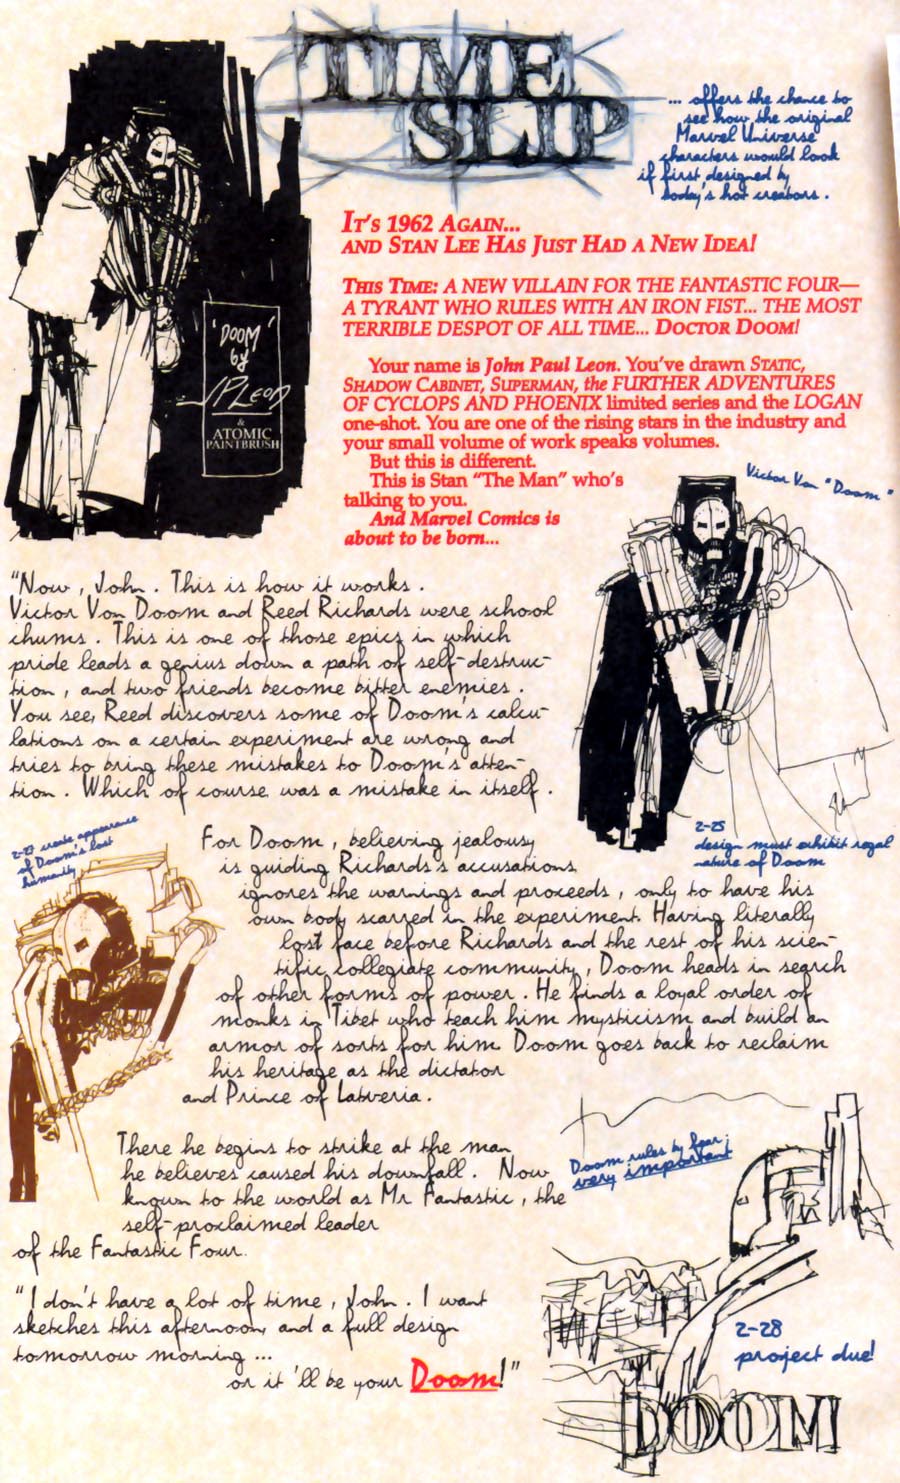 TIME
SLIP
... offers the chance to
see how the original
Marvel Universe
characters would look
if first designed by
today's hot creators.
IT'S 1962 AGAIN...
AND STAN LEE HAS JUST HAD A NEW IDEA!
THIS TIME: A NEW VILLAIN FOR THE FANTASTIC FOUR—
A TYRANT WHO RULES WITH AN IRON FIST... THE MOST
TERRIBLE DESPOT OF ALL TIME... DOCTOR DOOM!
'DOOM'
by
JP LEON
&
ATOMIC
PAINTBRUSH
Your name is John Paul Leon. You've drawn STATIC,
SHADOW CABINET, SUPERMAN, the FURTHER ADVENTURES
OF CYCLOPS AND PHOENIX limited series and the LOGAN
one-shot. You are one of the rising stars in the industry and
your small volume of work speaks volumes.
But this is different.
This is Stan "The Man" who's
talking to you.
And Marvel Comics is
about to be born...
Victor Von "Doom"
"Now, John. This is how it works.
Victor Von Doom and Reed Richards were school
chums. This is one of those epics in which
pride leads a genius down a path of self-destruc-
tion, and two friends become bitter enemies.
You see, Reed discovers some of Doom's calcu-
lations on a certain experiment are wrong and
tries to bring these mistakes to Doom's atten-
tion. Which of course was a mistake in itself.
2-25
design must exhibit regal
nature of Doom
2-27 create appearance
of Doom's lost
humanity
For Doom, believing jealousy
is guiding Richards's accusations,
ignores the warnings and proceeds, only to have his
own body scarred in the experiment. Having literally
lost face before Richards and the rest of his scien-
tific collegiate community, Doom heads in search
of other forms of power. He finds a loyal order of
monks in Tibet who teach him mysticism and build an
armor of sorts for him. Doom goes back to reclaim
his heritage as the dictator
and Prince of Latveria.
There he begins to strike at the man
he believes caused his downfall. Now
known to the world as Mr Fantastic, the
self-proclaimed leader
of the Fantastic Four.
Doom rules by fear;
very important
"I don't have a lot of time, John. I want
sketches this afternoon, and a full design
tomorrow morning...
or it'll be your Doom!"
2-28
project due!
DOOM